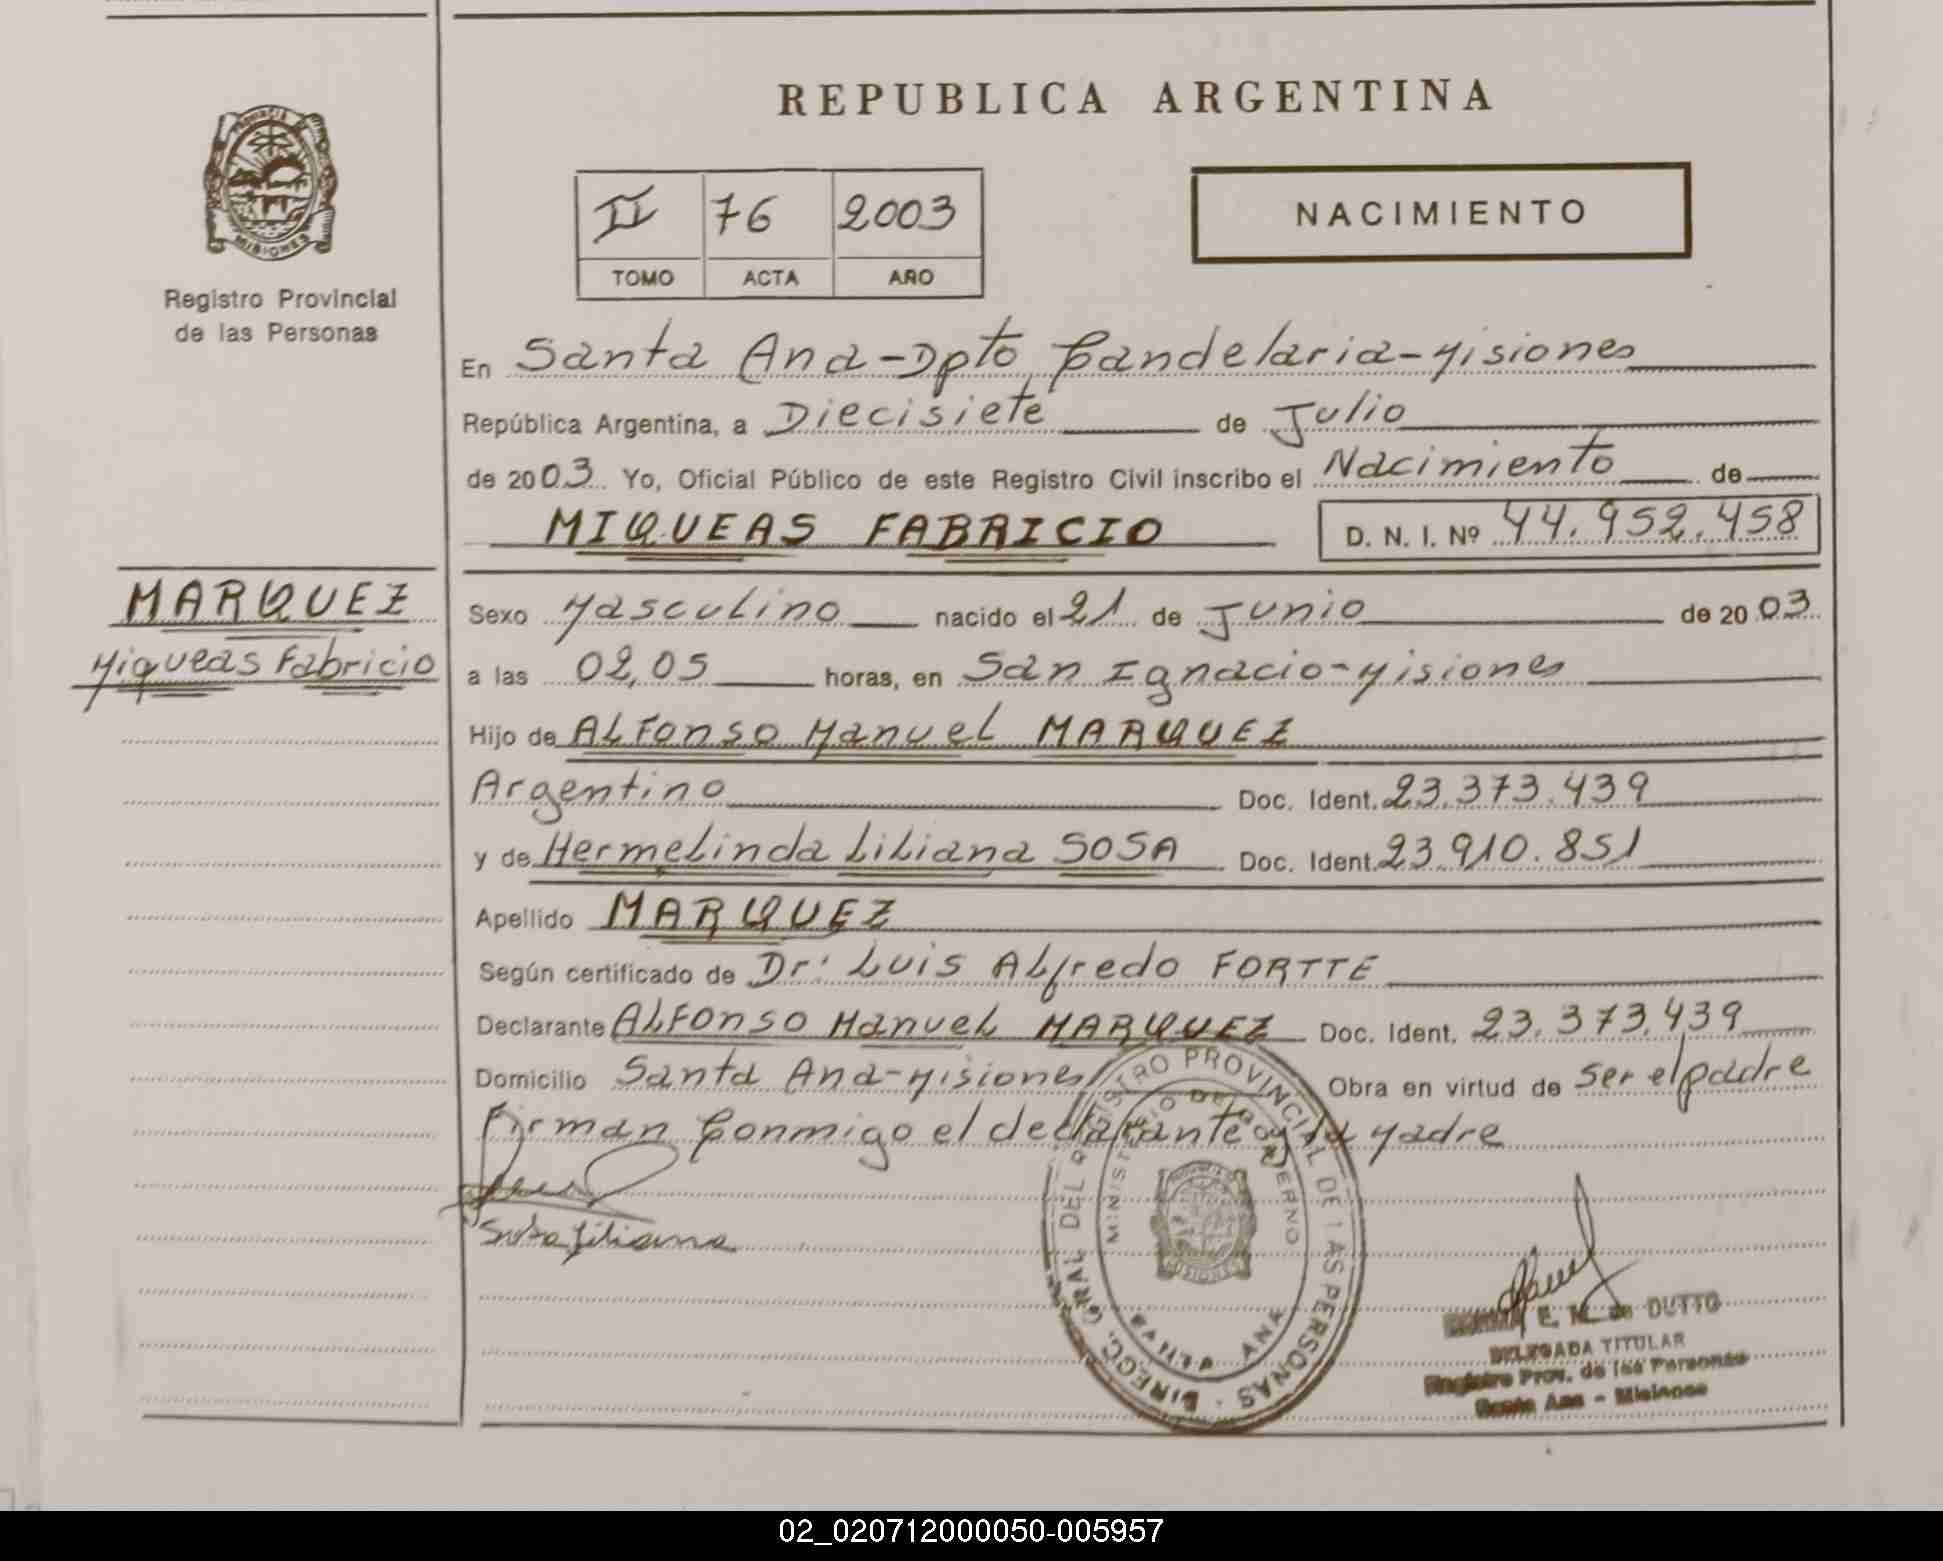 REPUBLICA ARGENTINA
PROVINCIA DE
MISIONES
Registro Provincial
de las Personas
II 76 2003
TOMO ACTA AÑO
NACIMIENTO
En Santa Ana-Dpto Candelaria-Misiones
República Argentina, a Diecisiete de Julio
de 2003. Yo, Oficial Público de este Registro Civil inscribo el Nacimiento de
MIQUEAS FABRICIO D. N. I. Nº 44.952.458
MARQUEZ
Miqueas Fabricio
Sexo Masculino nacido el 21 de Junio de 2003
a las 02,05 horas, en San Ignacio-Misiones
Hijo de ALFonso Manuel MARQUEZ
Argentino Doc. Ident. 23.373.439
y de Hermelinda Liliana SOSA Doc. Ident. 23.910.851
Apellido MARQUEZ
Según certificado de Dr. Luis ALfredo FORTTE
Declarante ALFonso Manuel MARQUEZ Doc. Ident. 23.373.439
Domicilio Santa Ana-Misiones Obra en virtud de ser el padre
Firman Conmigo el declarante y la Madre
Sosa Liliana
DIRECC. GRAL DEL REGISTRO PROVINCIAL DE LAS PERSONAS
MINISTERIO DE GOBIERNO
MISIONES
SANTA ANA
E. M. de DUTTO
DELEGADA TITULAR
Registro Prov. de las Personas
Santa Ana - Misiones
02_020712000050-005957